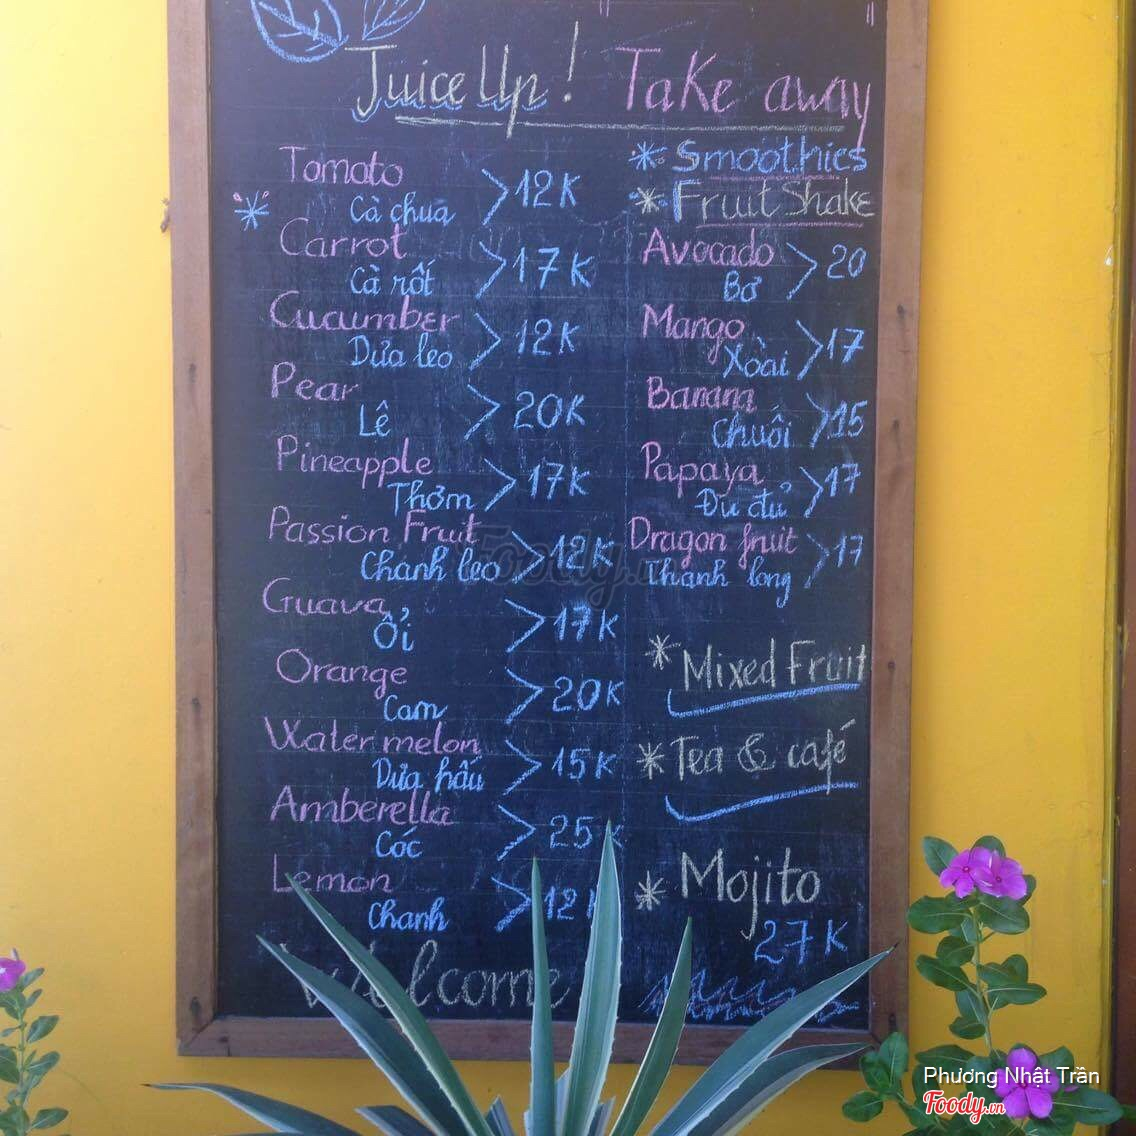 Juice Up! Take away
Tomato
Cà chua > 12K
Carrot
Cà rốt > 17K
Cucumber
Dưa leo > 12K
Pear
Lê > 20K
Pineapple
Thơm > 17K
Passion Fruit
Chanh leo > 12K
Guava
Ổi > 17K
Orange
Cam > 20K
Water melon
Dưa hấu > 15K
Amberella
Cóc > 25K
Lemon
Chanh > 12K
Welcome
* Smoothies
* Fruit Shake
Avocado
Bơ > 20
Mango
Xoài > 17
Banana
Chuối > 15
Papaya
Đu đủ > 17
Dragon fruit
Thanh long > 17
* Mixed Fruit
* Tea & café
* Mojito
27K
Foody.vn
Phương Nhật Trần
Foody.vn